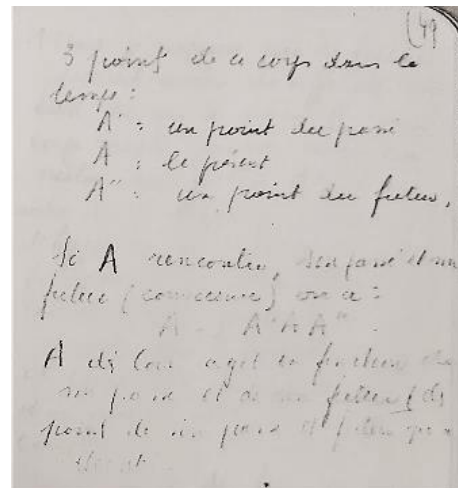 (49
3 point de ce corps dans le
temps :
A' = un point du passé
A : le présent
A'' : un point du futur.
Si A rencontre, son passé et son
futur (conscience) on a :
A = A'AA''
A agit en fonction de
son passé et de son futur (de
point de son passé et futur